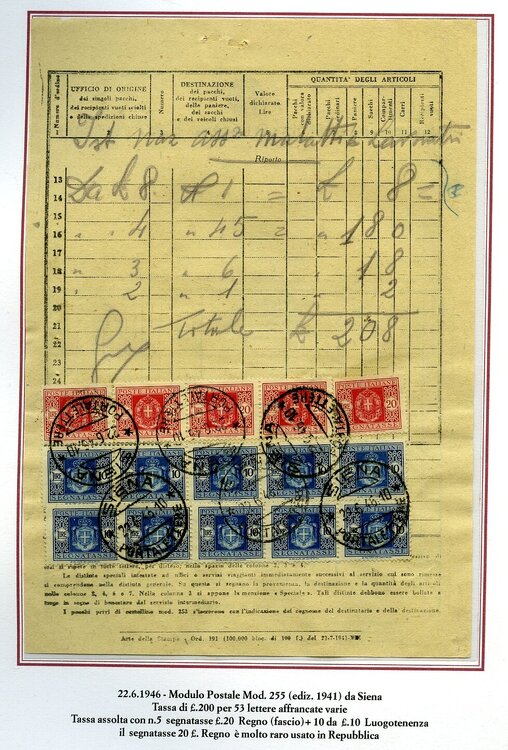 Numero d'ordine
UFFICIO DI ORIGINE
dei singoli pacchi,
dei recipienti vuoti sciolti
e delle spedizioni chiuse
Numero
DESTINAZIONE
dei pacchi,
dei recipienti vuoti,
delle paniere,
dei sacchi
e dei veicoli chiusi
Valore
dichiarato
Lire
QUANTITA' DEGLI ARTICOLI
Pacchi
con valore
dichiarato
Pacchi
ordinari
Paniere
Sacchi
Carri
Recipienti
vuoti
1 2 3 4 5 6 7 8 9 10 11 12
Ist naz ass malattie lavoratori
Riporto
13
14
15
16
17
18
19
20
21
22
23
24
Da £ 8. N 1 = £ 8 =
" " 4 " 45 = " 180
" 3 " 6 " 18
" 2 " 1 " 2
Totale £ 208
POSTE ITALIANE
20
SEGNATASSE
10
SIENA
PORTALETTERE
22.6.46.10
Le distinte speciali intestate ad uffici o servizi viaggianti immediatamente successivi al servizio cui sono rimesse
si comprendono nella distinta generale. Su questa si segnano la provenienza, la destinazione e la quantità degli articoli
nelle colonne 2, 4, 6 e 7. Nella colonna 3 si appone la menzione « Speciale ». Tali distinte devono essere bollate a
tergo in segno di benestare dal servizio intermediario.
I pacchi privi di cartellino mod. 253 s'inscrivono con l'indicazione del cognome del destinatario e della destinazione.
Arte della Stampa - Ord. 191 (100.000 bloc. di 100 f.) del 22-7-1941-XIX
22.6.1946 - Modulo Postale Mod. 255 (ediz. 1941) da Siena
Tassa di £.200 per 53 lettere affrancate varie
Tassa assolta con n.5 segnatasse £.20 Regno (fascio)+ 10 da £.10 Luogotenenza
il segnatasse 20 £. Regno è molto raro usato in Repubblica